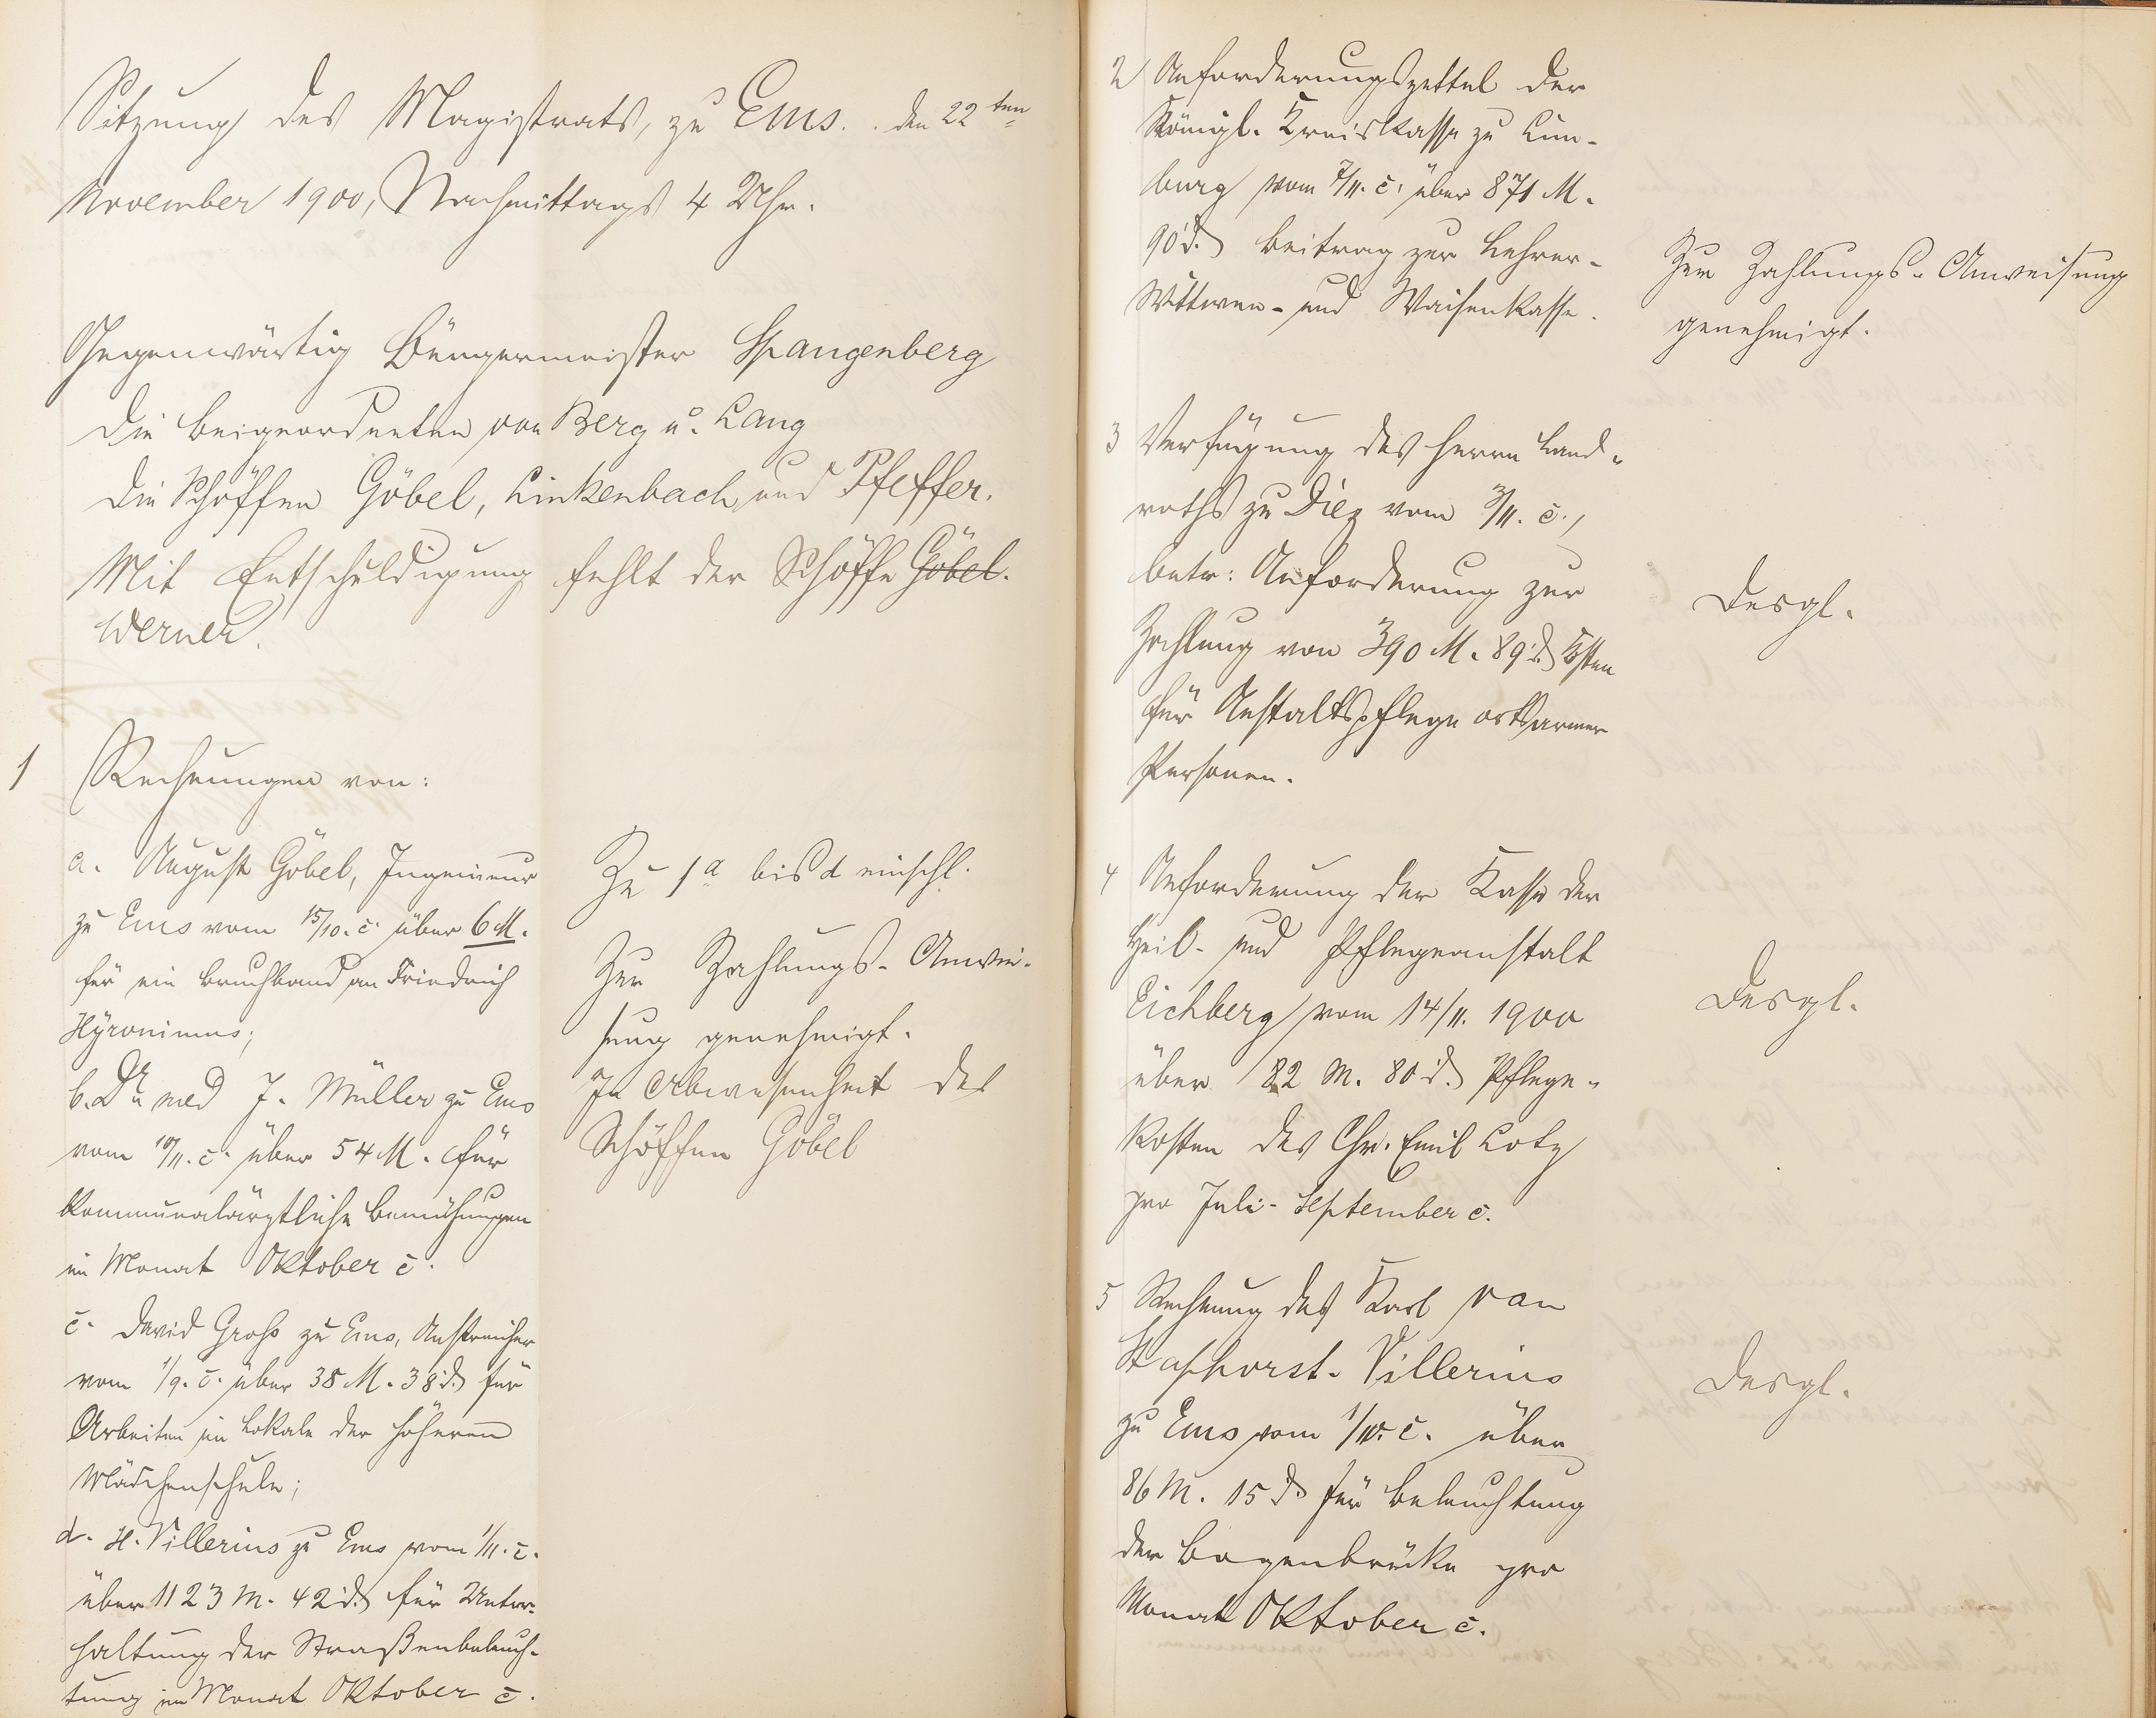 Sitzung des Magistrats, zu Ems. den 22ten
November 1900, Nachmittags 4 Uhr.
Gegenwärtig Bürgermeister Spangenberg
die Beigeordneten von Berg u. Lang
die Schöffen Göbel, Linkenbach und Pfeffer.
Mit Entschuldigung fehlt der Schöffe Göbel.
Werner.
1 Rechnungen von:
a. August Göbel, Ingenieur
zu Ems vom 15/10. c. über 6 M.
für ein Bruchband an Friedrich
Hÿronimus;
b. Dr. med J. Müller zu Ems
vom 10/11. c. über 54 M. für
kommunalärztliche Bemühungen
im Monat Oktober c.
c. David Groß zu Ems, Anstreicher
vom 1/9. c. über 38 M. 38 d. für
Arbeiten im Lokale der höheren
Mädchenschule;
d. H. Villerius zu Ems vom 1/11. c.
über 1123 M. 42 d. für Unter-
haltung der Straßenbeleuch-
tung im Monat Oktober c.
Zu 1 a bis d einschl.
Zur Zahlungs-Anwei-
sung genehmigt.
In Abwesenheit des
Schöffen Göbel
2 Anforderungszettel der
Königl. Kreiskasse zu Lim-
burg vom 7/11. c. über 871 M.
90 d. Beitrag zur Lehrer-
Wittwen- und Waisenkasse.
Zur Zahlungs-Anweisung
genehmigt.
3 Verfügung des Herrn Land-
raths zu Diez vom 3/11. c.,
betr: Anforderung zur
Zahlung von 390 M. 89 d. Kosten
für Anstaltspflege ortsarmer
Personen.
Desgl.
4 Anforderung der Kasse der
Heil- und Pflegeanstalt
Eichberg vom 14/11. 1900
über 82 M. 80 d. Pflege-
kosten des Chr. Emil Lotz
pro Juli-September c.
Desgl.
5 Rechnung des Karl van
Staphorst-Villerius
zu Ems vom 1/11. c. über
86 M. 15 d. für Beleuchtung
der Bogenbrücke pro
Monat Oktober c.
Desgl.